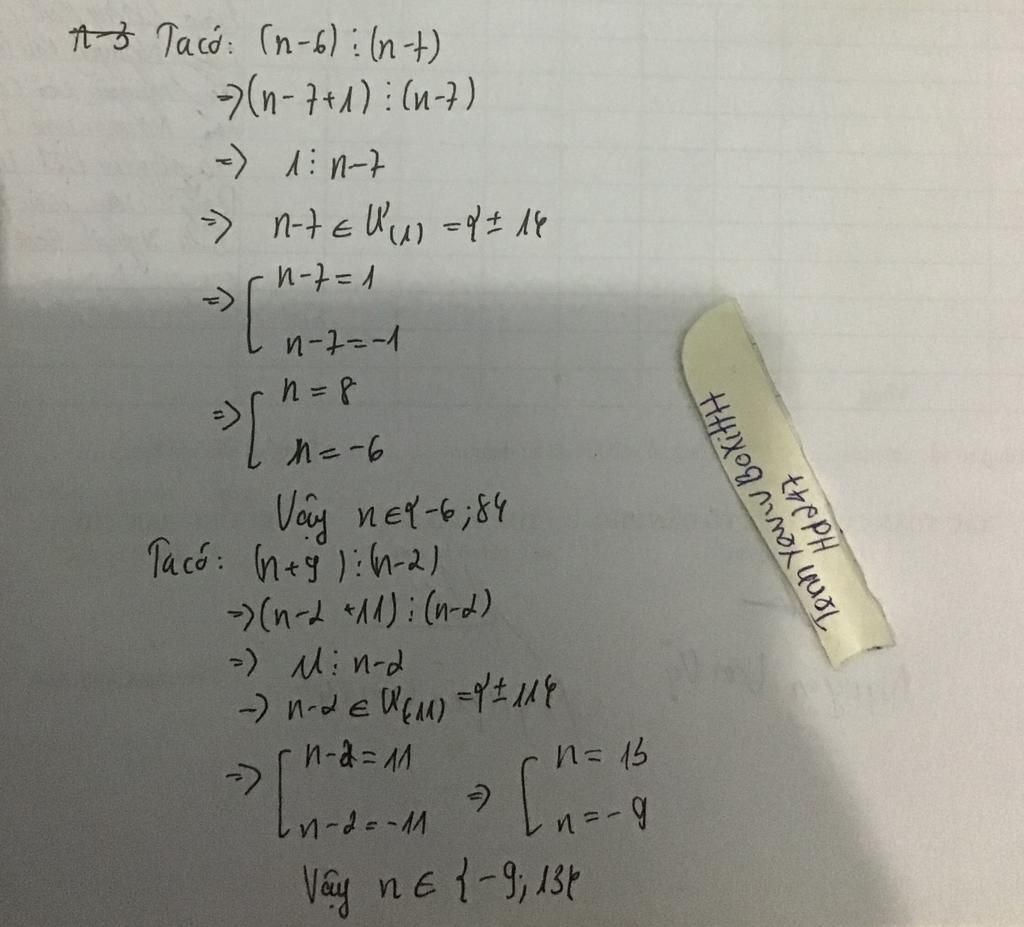 n-3 Ta có: (n-6)⋮(n-7)
=>(n-7+1)⋮(n-7)
=> 1⋮n-7
=> n-7 ∈ Ư(1) = {±1}
=> [ n-7=1
n-7=-1
=> [ n=8
n=-6
Vậy n∈{-6;8}
Ta có: (n+9)⋮(n-2)
=>(n-2+11)⋮(n-2)
=> 11⋮n-2
-> n-2 ∈ Ư(11) = {±11}
=> [ n-2=11 => [ n=13
n-2=-11 n=-9
Vậy n ∈ {-9;13}
Tenn Yewww BoxiHHH
Hdg47